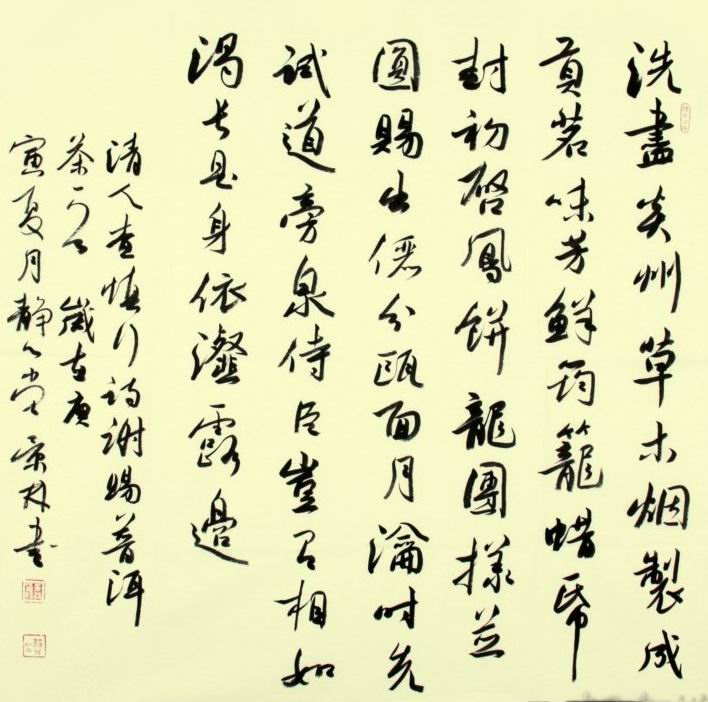 洗盡炎州草木烟製成
貢茗味芳鮮筠籠蜡帋
封初啓鳳餅龍團樣並
圓賜出儼分甌面月瀹时先
試道旁泉侍臣豈有相如
渴長是身依瀣露邊
清人查慎行詩謝賜普洱
茶一首 歲在庚
寅夏月靜心堂書